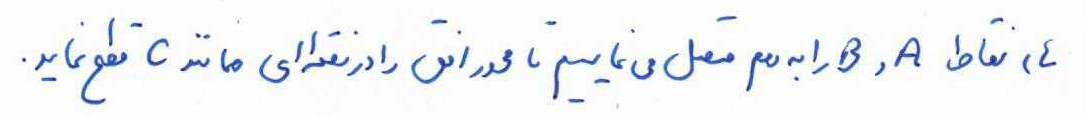 ۴، نقاط A و B را به هم متصل می نماییم تا محور افق را در نقطه ای مانند C قطع نماید.